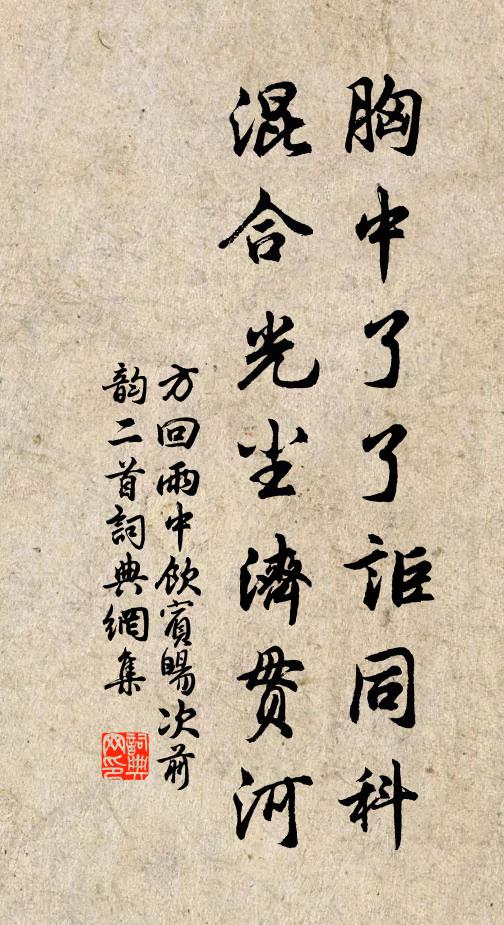 胸中了了詎同科
混合光尘濟貫河
方回雨中飲賓暘次前
韵二首詞典網集
詞典
网印